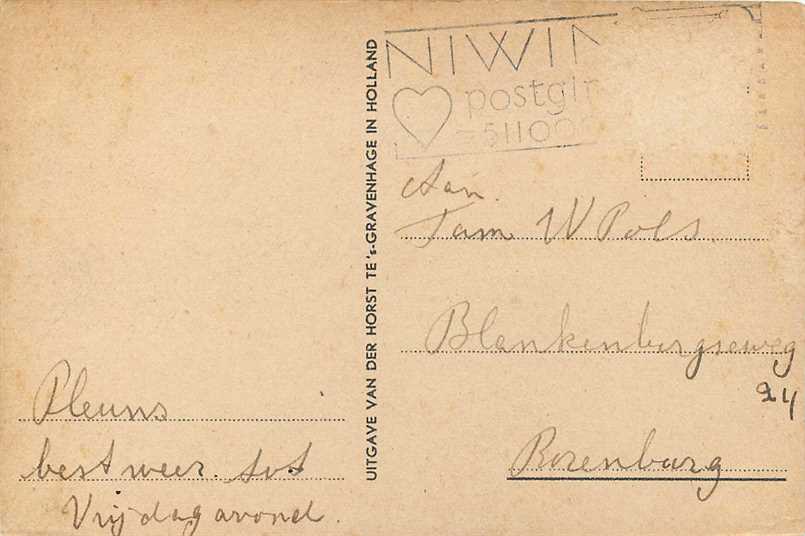 Pleuns
best weer. tot
Vrijdag avond.
UITGAVE VAN DER HORST TE 's-GRAVENHAGE IN HOLLAND
NIWIN
postgir
511000
Aan.
Fam W Pols
Blankenburgseweg
24
Rozenburg